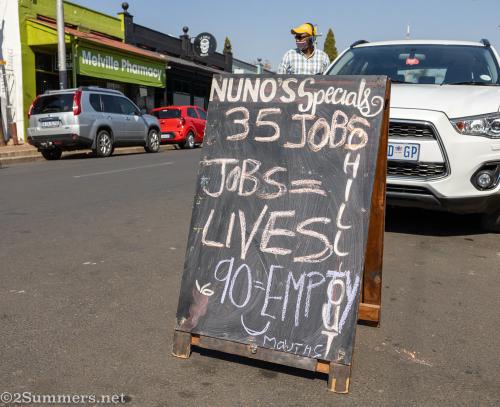 Melville Pharmacy
NUNO'S Specials
35 JOBS
JOBS =
LIVES!
90 = EMPTY
MOUTHS
CHILL OUT
D GP
©2Summers.net